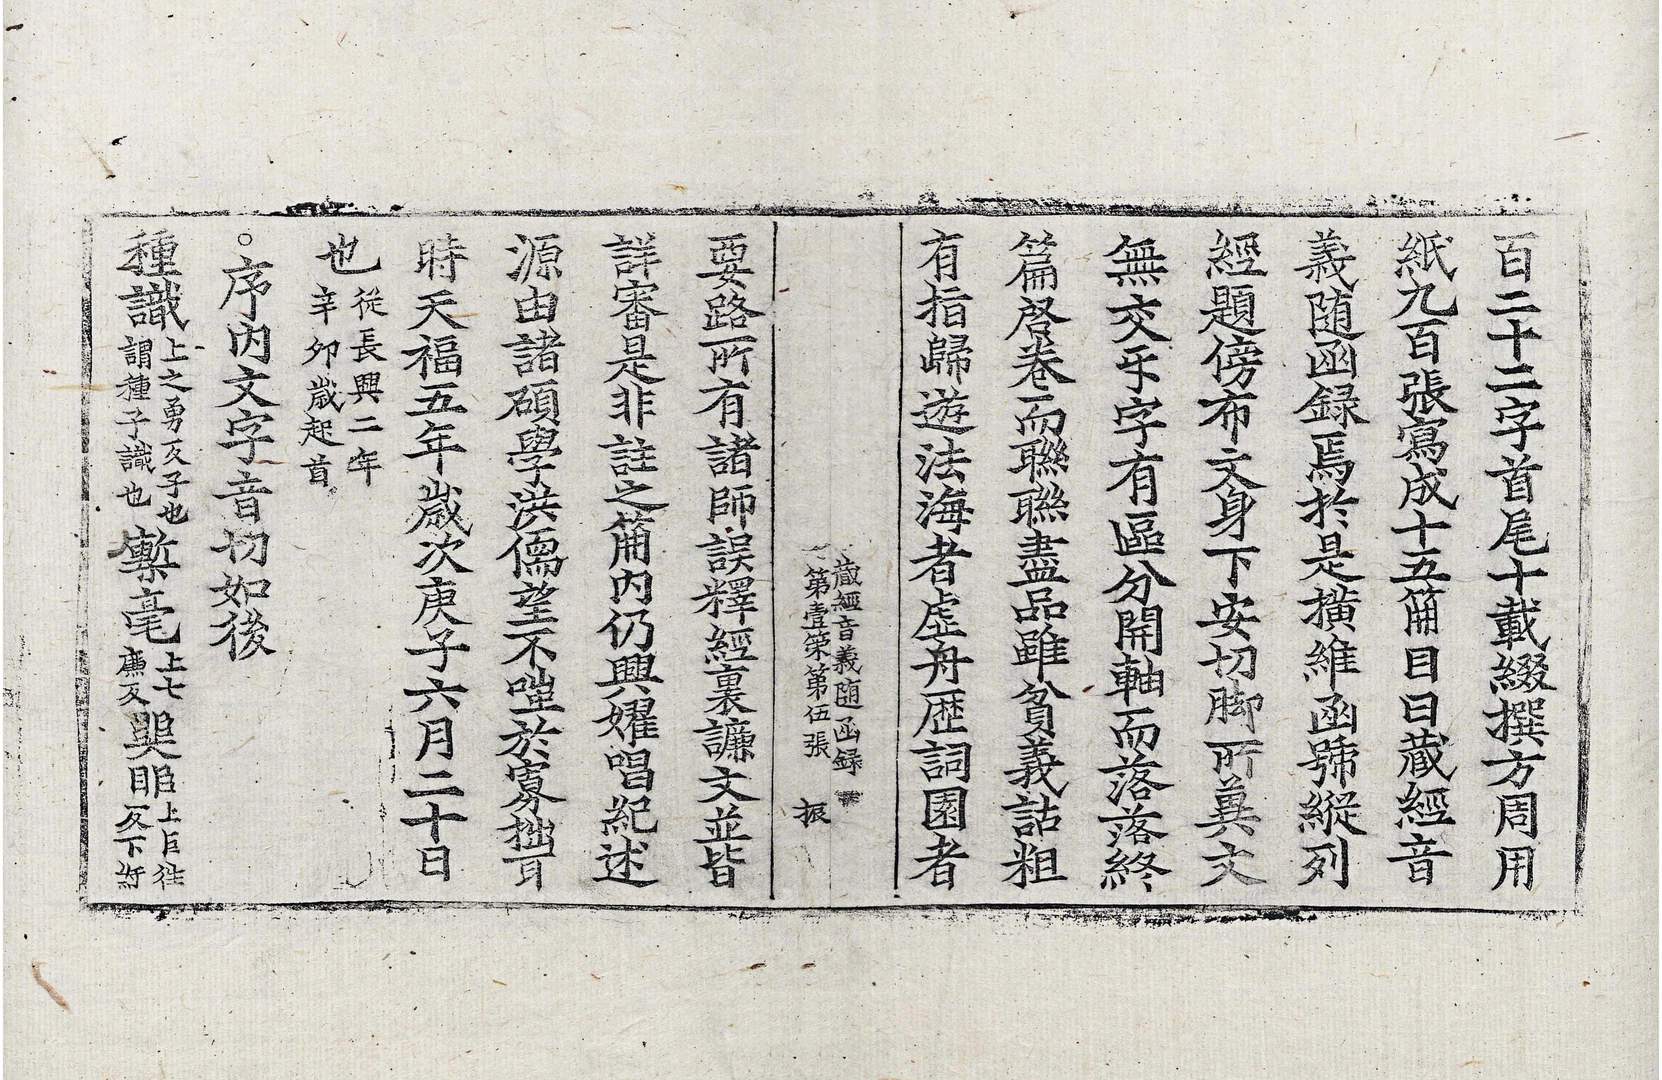 百二十二字首尾十載綴撰方周用
紙九百張寫成十五䇶目曰藏經音
義随函録焉於是横維函號縱列
經題傍布文身下安切脚所兾文
無交㸦字有區分開軸而落落終
篇啓卷而聮聮盡品雖貧義詁粗
有指歸遊法海者虛舟歷詞園者
藏經音義随函録
第壹策第伍張 振
要路所有諸師誤釋經裏謙文並皆
詳審是非註之䇶内仍興嬥唱紀述
源由諸碩學洪儒望不嗤於寡拙耳
時天福五年歲次庚子六月二十日
也 從長興二年
辛卯歲起首
○序内文字音切如後
種識 上之勇反子也
謂種子識也 槧毫 上七
廉反 㒷眀 上巨往
反下